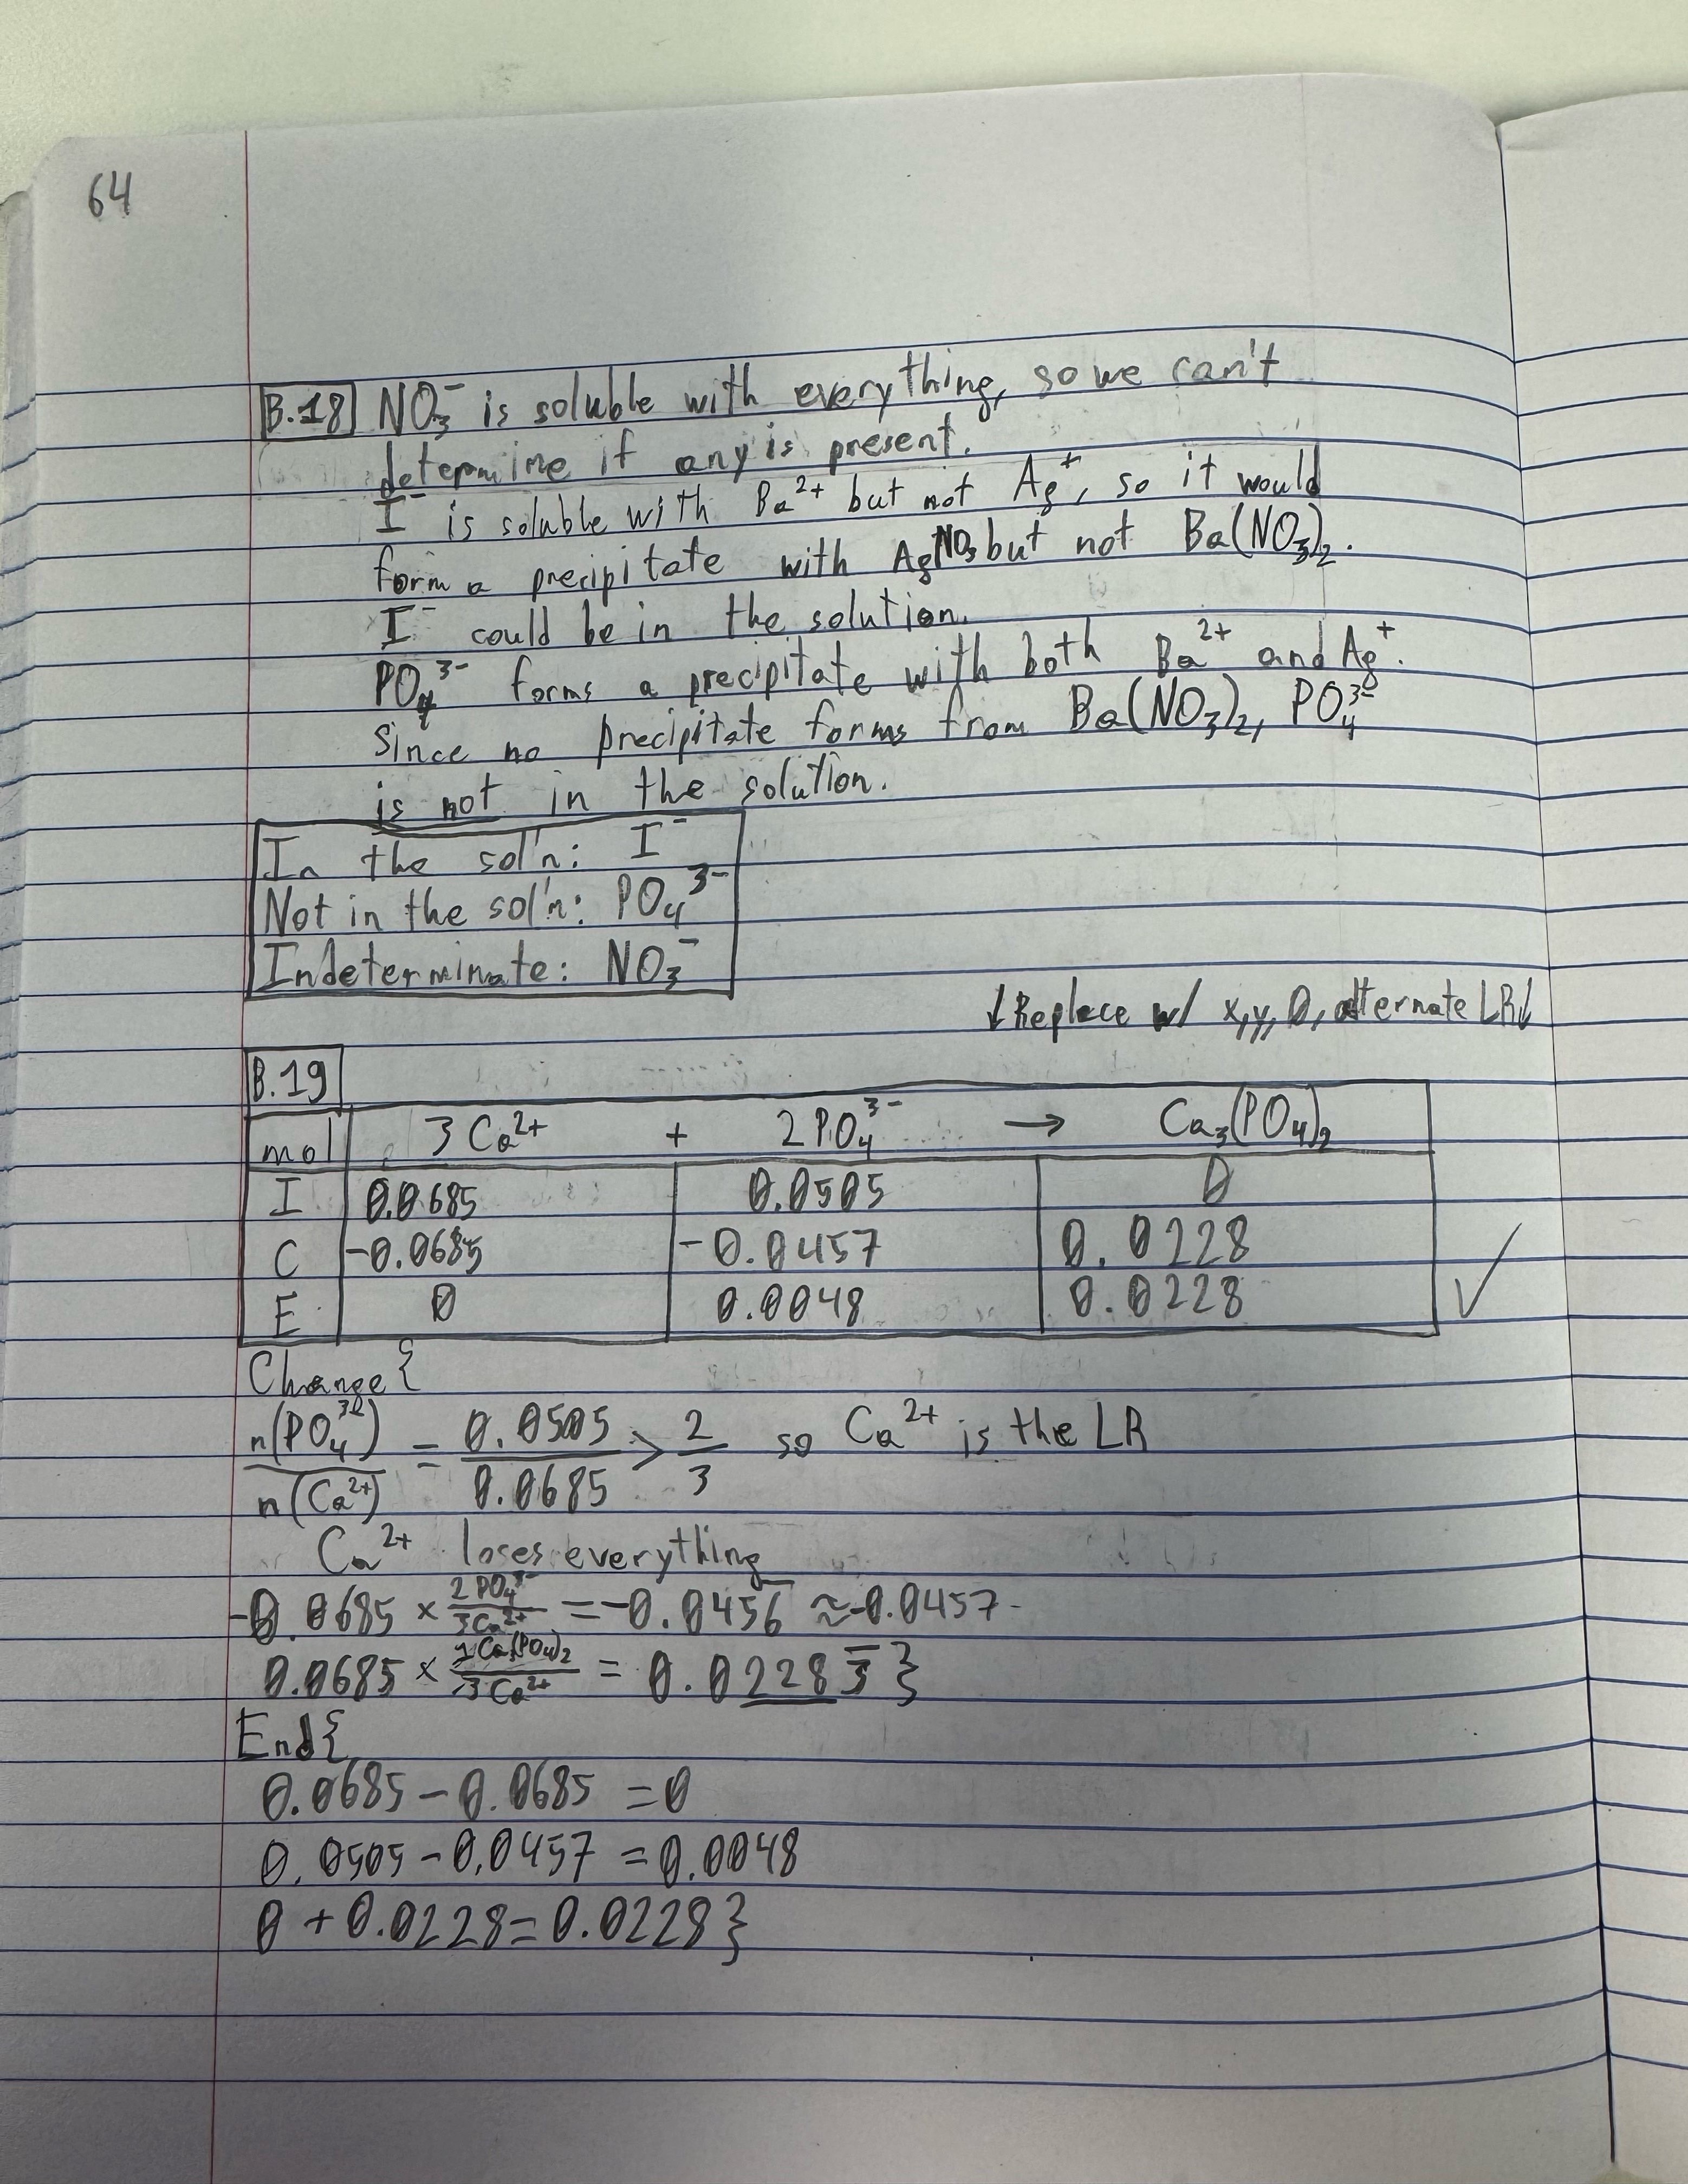 64
B.18 NO₃⁻ is soluble with everything, so we can't
determine if any is present.
I⁻ is soluble with Ba²⁺ but not Ag⁺, so it would
form a precipitate with AgNO₃ but not Ba(NO₃)₂.
I⁻ could be in the solution.
PO₄³⁻ forms a precipitate with both Ba²⁺ and Ag⁺.
Since no precipitate forms from Ba(NO₃)₂, PO₄³⁻
is not in the solution.
In the sol'n: I⁻
Not in the sol'n: PO₄³⁻
Indeterminate: NO₃⁻
↓Replace w/ x,y,0, alternate LR↓
B.19
mol 3 Ca²⁺ + 2 PO₄³⁻ → Ca₃(PO₄)₂
I 0.0685 0.0505 0
C -0.0685 -0.0457 0.0228
E 0 0.0048 0.0228 ✓
Change {
n(PO₄³⁻)/n(Ca²⁺) = 0.0505/0.0685 > 2/3 so Ca²⁺ is the LR
Ca²⁺ loses everything
-0.0685 × 2 PO₄³⁻/3 Ca²⁺ = -0.0456̅ ≈ -0.0457
0.0685 × 1 Ca₃(PO₄)₂/3 Ca²⁺ = 0.02283̅ }
End {
0.0685 - 0.0685 = 0
0.0505 - 0.0457 = 0.0048
0 + 0.0228 = 0.0228 }